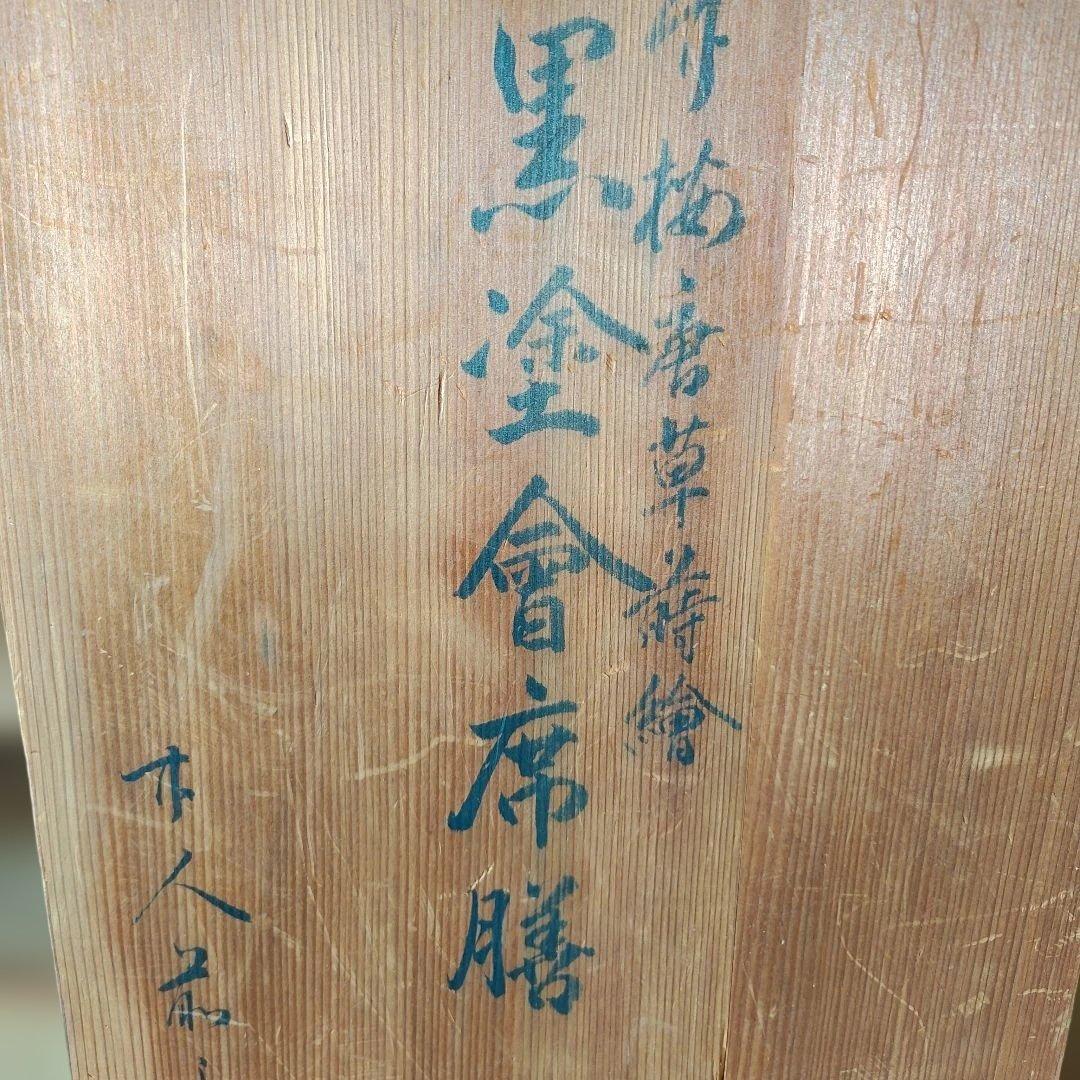 竹梅唐草蒔繪
黒塗會席膳
人前